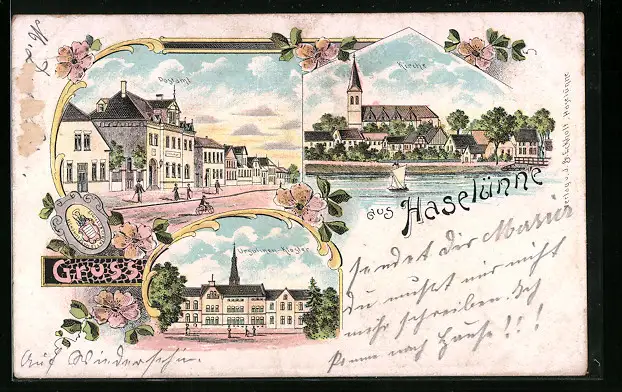 No. 2
Postamt
Kirche
Ursulinen-Kloster
Gruss
aus Haselünne
sendet Dir Maria
Du mußt mir nicht
mehr schreiben. Ich
komme nach Hause!!!
Auf Wiedersehn.
Verlag v. J.
Haselünne